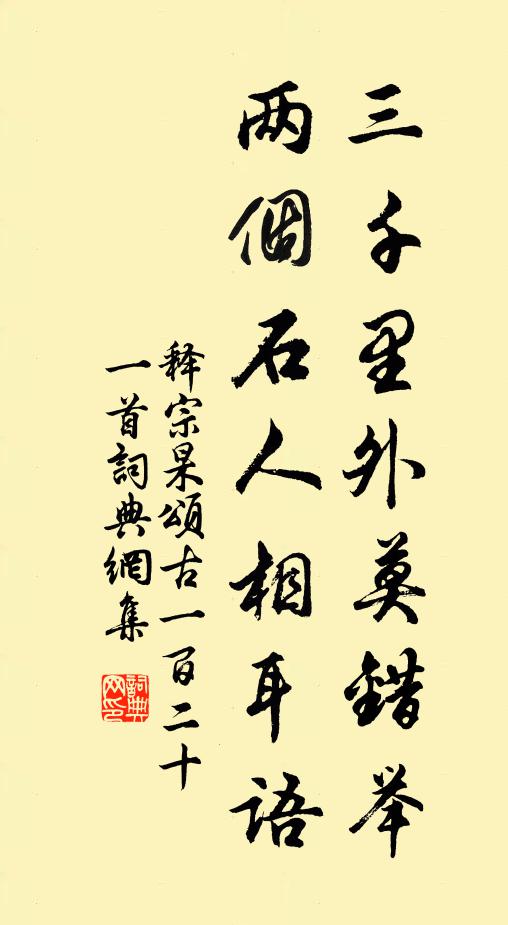 三千里外莫錯举
两個石人相耳語
释宗杲頌古一百二十
一首詞典網集
詞典网印